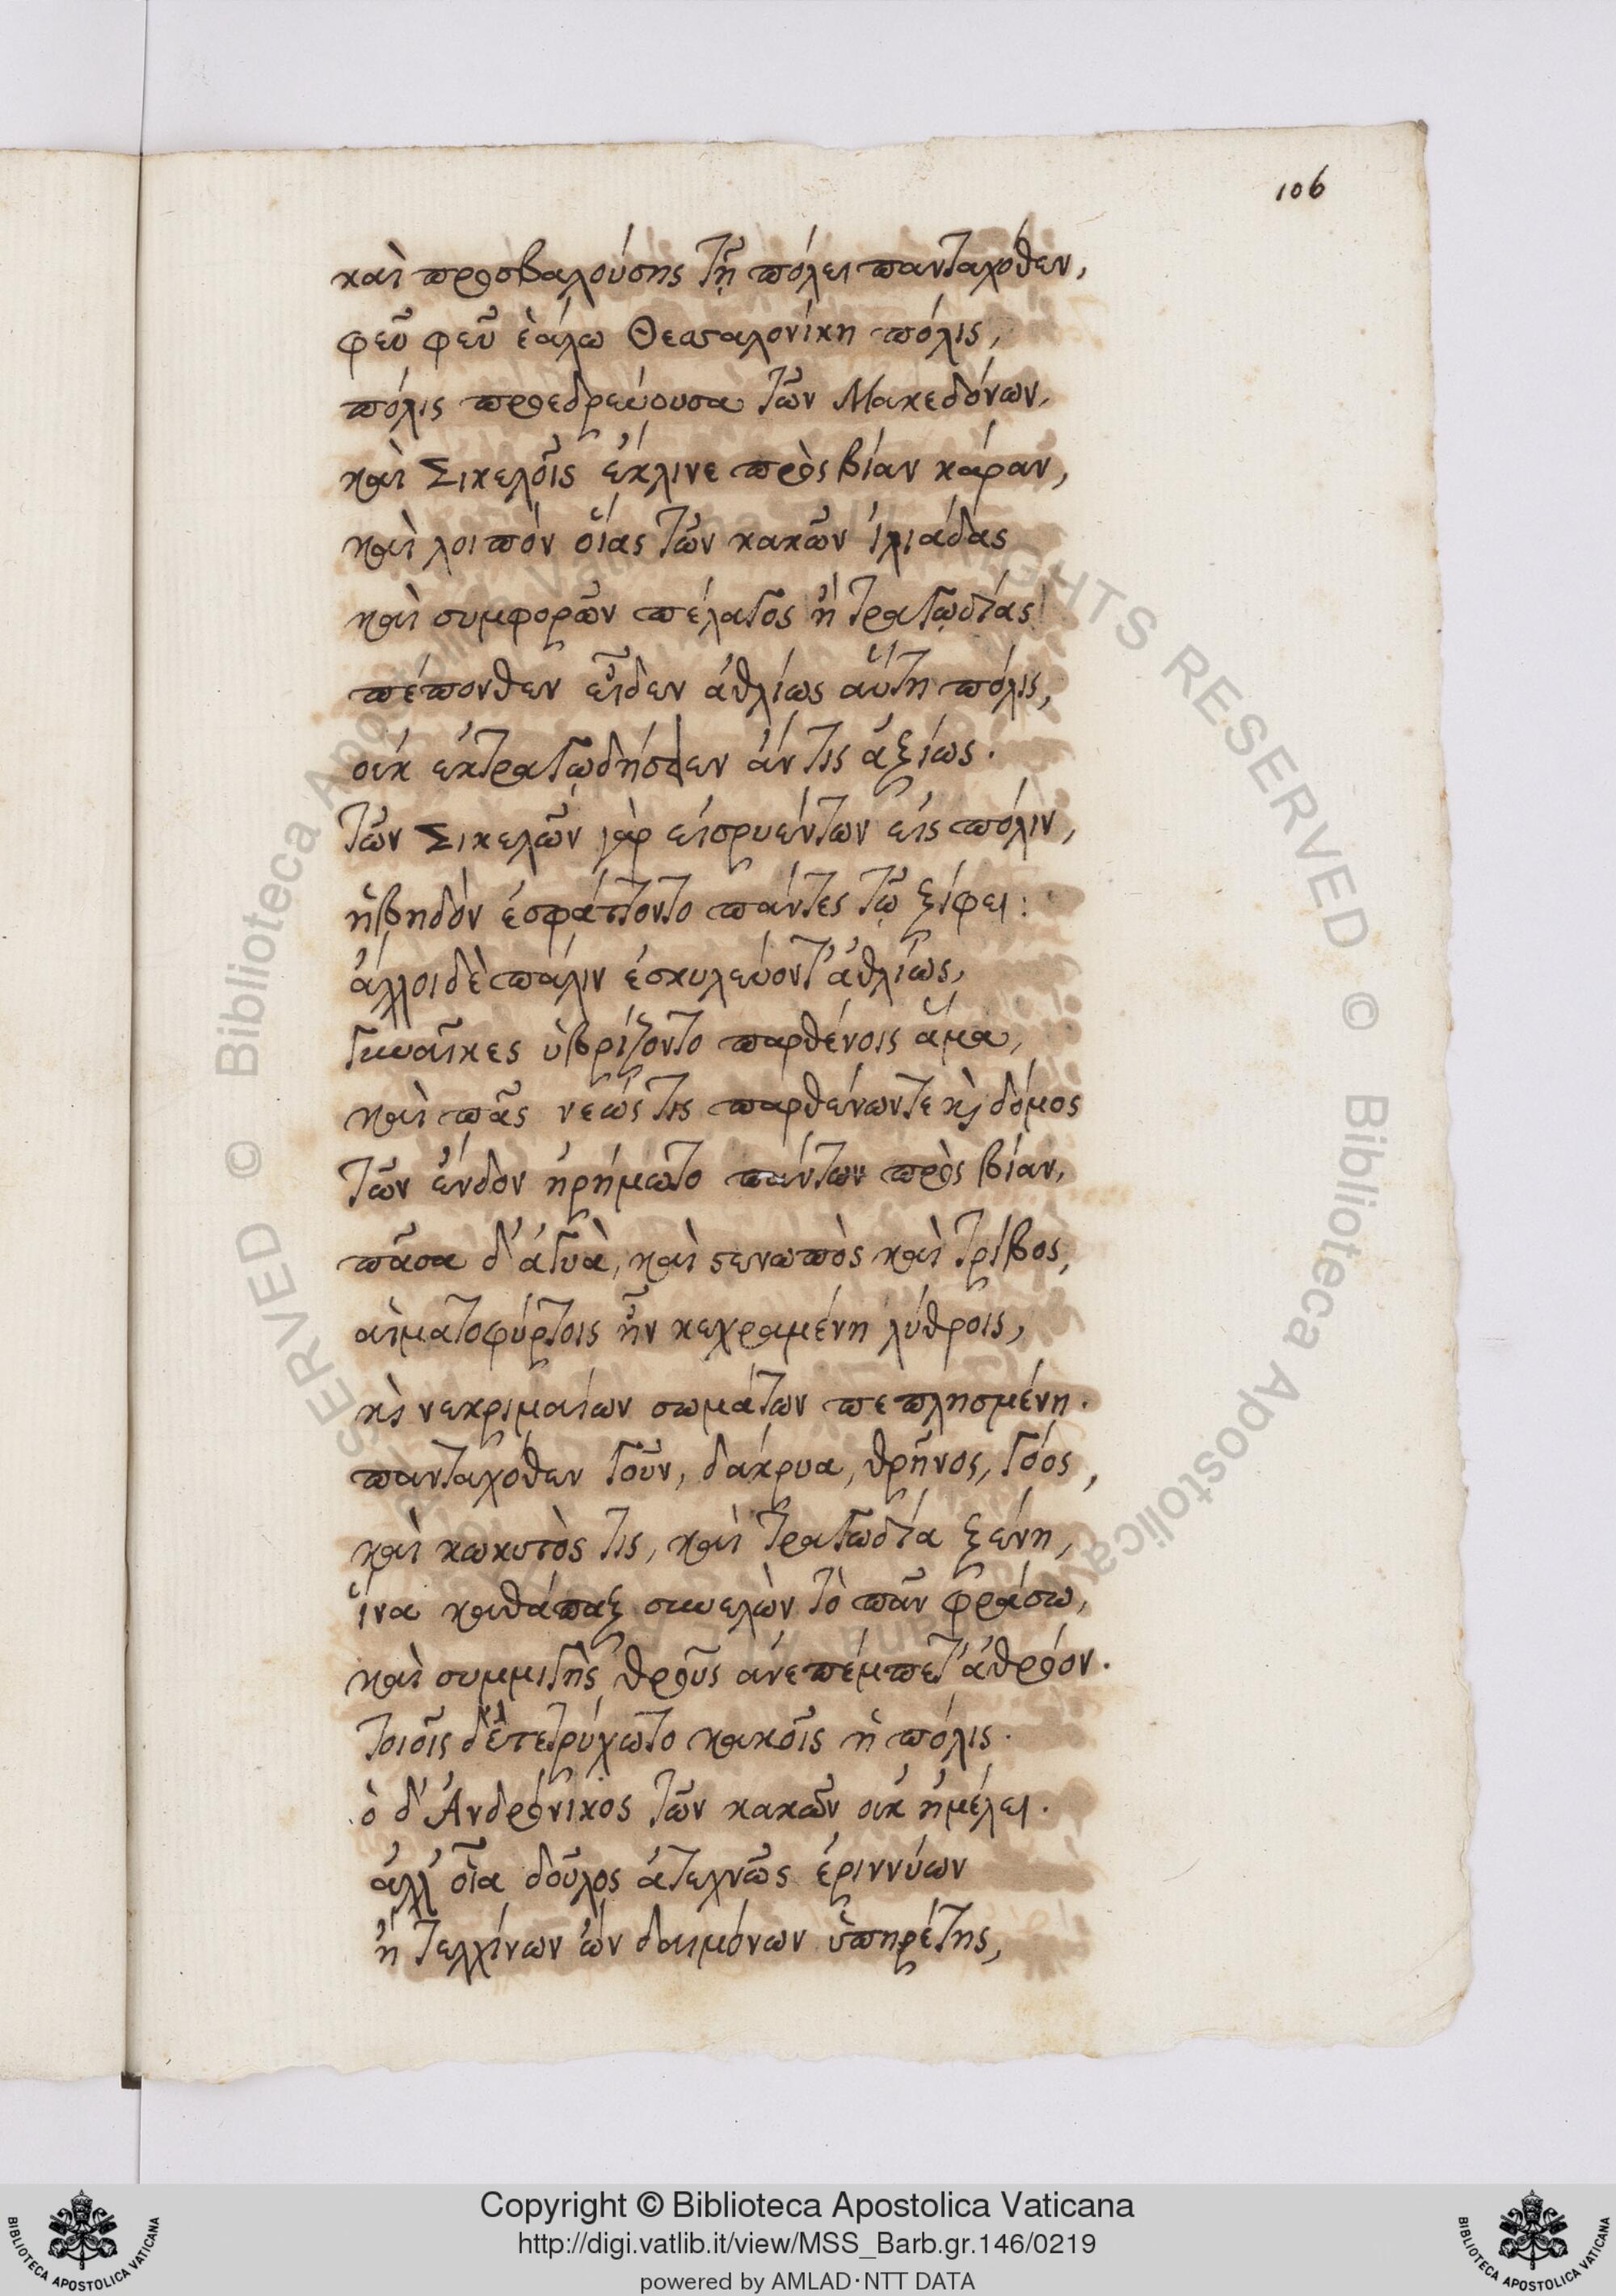 106
καὶ προσβαλούσης τῇ πόλει πανταχόθεν,
φεῦ φεῦ ἑάλω Θεσσαλονίκη πόλις,
πόλις προεδρεύουσα τῶν Μακεδόνων,
καὶ Σικελοῖς ἔκλινε πρὸς βίαν κάραν,
καὶ λοιπὸν οἵας τῶν κακῶν ἰλιάδας
καὶ συμφορῶν πέλαγος ἢ τραγῳδίας
πέπονθεν εἶδεν ἀθλίως αὕτη πόλις,
οὐκ ἐκτραγῳδήσειεν ἄν τις ἀξίως.
τῶν Σικελῶν γὰρ εἰσρυέντων εἰς πόλιν,
ἡβηδὸν ἐσφάττοντο πάντες τῷ ξίφει:
ἄλλοι δὲ πάλιν ἐσκυλεύοντ' ἀθλίως,
γυναῖκες ὑβρίζοντο παρθένοις ἅμα,
καὶ πᾶς νεώς τις παρθένων τε κỳ δόμος
τῶν ἔνδον ἠρήμωτο πάντων πρὸς βίαν,
πᾶσα δ' ἀγυὰ, καὶ στενωπὸς καὶ τρίβος,
αἱματοφύρτοις ἦν κεχραμένη λύθροις,
κỳ νεκριμαίων σωμάτων πεπλησμένη.
πανταχόθεν γοῦν, δάκρυα, θρῆνος, γόος,
καὶ κωκυτὸς τις, καὶ τραγωδία ξένη,
ἵνα καθάπαξ συνελὼν τὸ πᾶν φράσω,
καὶ συμμιγὴς θροῦς ἀνεπέμπετ' ἀθρόον.
τοιοῖς δ' ἐτετρύχωτο κακοῖς ἡ πόλις.
ὁ δ' Ἀνδρόνικος τῶν κακῶν οὐκ ἠμέλει.
ἀλλ' οἷα δοῦλος ἀτεχνῶς ἐριννύων
ἢ τελχίνων ὢν δαιμόνων ὑπηρέτης,
© Biblioteca Apostolica Vaticana
Copyright © Biblioteca Apostolica Vaticana
http://digi.vatlib.it/view/MSS_Barb.gr.146/0219
powered by AMLAD·NTT DATA
BIBLIOTECA APOSTOLICA VATICANA
BIBLIOTECA APOSTOLICA VATICANA